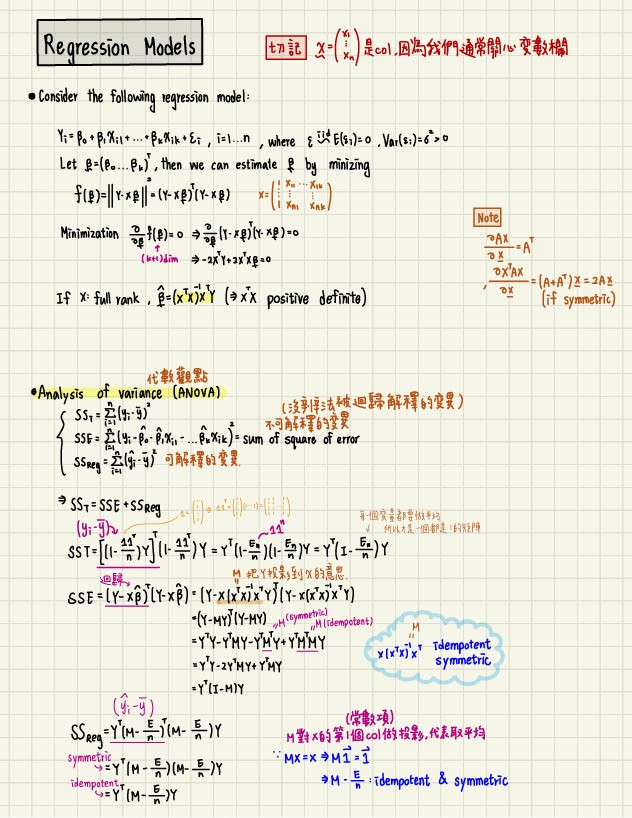 Regression Models
切記 x=(x₁ ⋮ xₙ) 是col,因為我們通常關心變數欄
• Consider the following regression model:
Yᵢ=β₀+β₁Xᵢ₁+...+βₖXᵢₖ+εᵢ , i=1...n , where ε iid E(εᵢ)=0 , Var(εᵢ)=σ²>0
Let β=(β₀...βₖ)ᵀ, then we can estimate β by minizing
f(β)=‖Y-Xβ‖²=(Y-Xβ)ᵀ(Y-Xβ)
X=(1 X₁₁ ⋯ X₁ₖ ⋮ ⋮ ⋮ 1 Xₙ₁ Xₙₖ)
Minimization ∂/∂β f(β)=0 ⇒ ∂/∂β (Y-Xβ)ᵀ(Y-Xβ)=0
(k+1)dim
⇒ -2XᵀY+2XᵀXβ=0
Note
∂AX/∂X = Aᵀ
, ∂XᵀAX/∂X = (A+Aᵀ)X = 2AX
(if symmetric)
If X: full rank , β̂=(XᵀX)⁻¹XᵀY (⇒XᵀX positive definite)
代數觀點
• Analysis of variance (ANOVA)
(沒辦法被迴歸解釋的變異)
SS_T = Σᵢ₌₁ⁿ(yᵢ-ȳ)²
不可解釋的變異
SSE = Σᵢ₌₁ⁿ(yᵢ-β̂₀-β̂₁Xᵢ₁-...β̂ₖXᵢₖ)² = sum of square of error
SS_Reg = Σᵢ₌₁ⁿ(ŷᵢ-ȳ)² 可解釋的變異.
⇒ SS_T = SSE + SS_Reg
1=(1 ⋮ 1) ⇒ 11ᵀ=(1 ⋮ 1)(1 ⋯ 1)=
每一個變量都要做平均
所以才是一個都是1的矩陣
(yᵢ-ȳ)
11ᵀ
SST=[(I-11ᵀ/n)Y]ᵀ(I-11ᵀ/n)Y = Yᵀ(I-Eₙ/n)(I-Eₙ/n)Y = Yᵀ(I-Eₙ/n)Y
迴歸
M 把Y投影到X的意思.
SSE=(Y-Xβ̂)ᵀ(Y-Xβ̂) = (Y-X(XᵀX)⁻¹XᵀY)ᵀ(Y-X(XᵀX)⁻¹XᵀY)
=(Y-MY)ᵀ(Y-MY)
=M(symmetric)
=M(idempotent)
=YᵀY-YᵀMY-YᵀMᵀY+YᵀMᵀMY
=YᵀY-2YᵀMY+YᵀMY
=Yᵀ(I-M)Y
M
=
X(XᵀX)⁻¹Xᵀ idempotent
symmetric
(ŷᵢ-ȳ)
SS_Reg=Yᵀ(M-E/n)ᵀ(M-E/n)Y
symmetric
=Yᵀ(M-E/n)(M-E/n)Y
idempotent
=Yᵀ(M-E/n)Y
(常數項)
M對X的第1個col做投影,代表取平均
∵ MX=X ⇒ M1⃗=1⃗
⇒ M-E/n : idempotent & symmetric